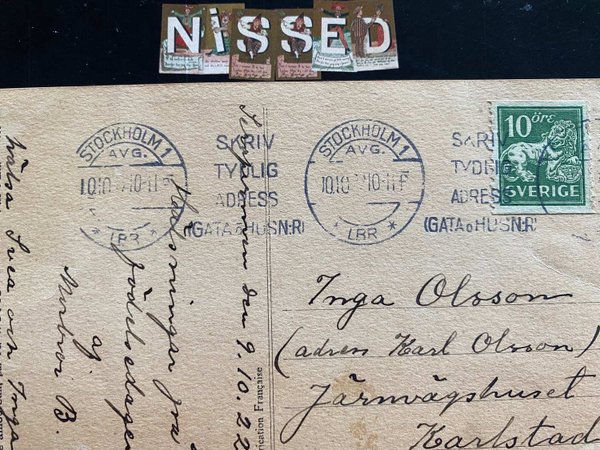 NiSSED
STOCKHOLM 1
AVG.
10 10 10-11 F
LBR
SKRIV
TYDLIG
ADRESS
(GATA o HUSN:R)
STOCKHOLM 1
AVG.
10 10 10-11 F
LBR
SKRIV
TYDLIG
ADRESS
(GATA o HUSN:R)
10 ÖRE
SVERIGE
den 9.10.22
från
födelsedagen
av
B.
hälsa Svea och Inga
Française
Inga Olsson
(adress Karl Olsson)
Järnvägshuset
Karlstad